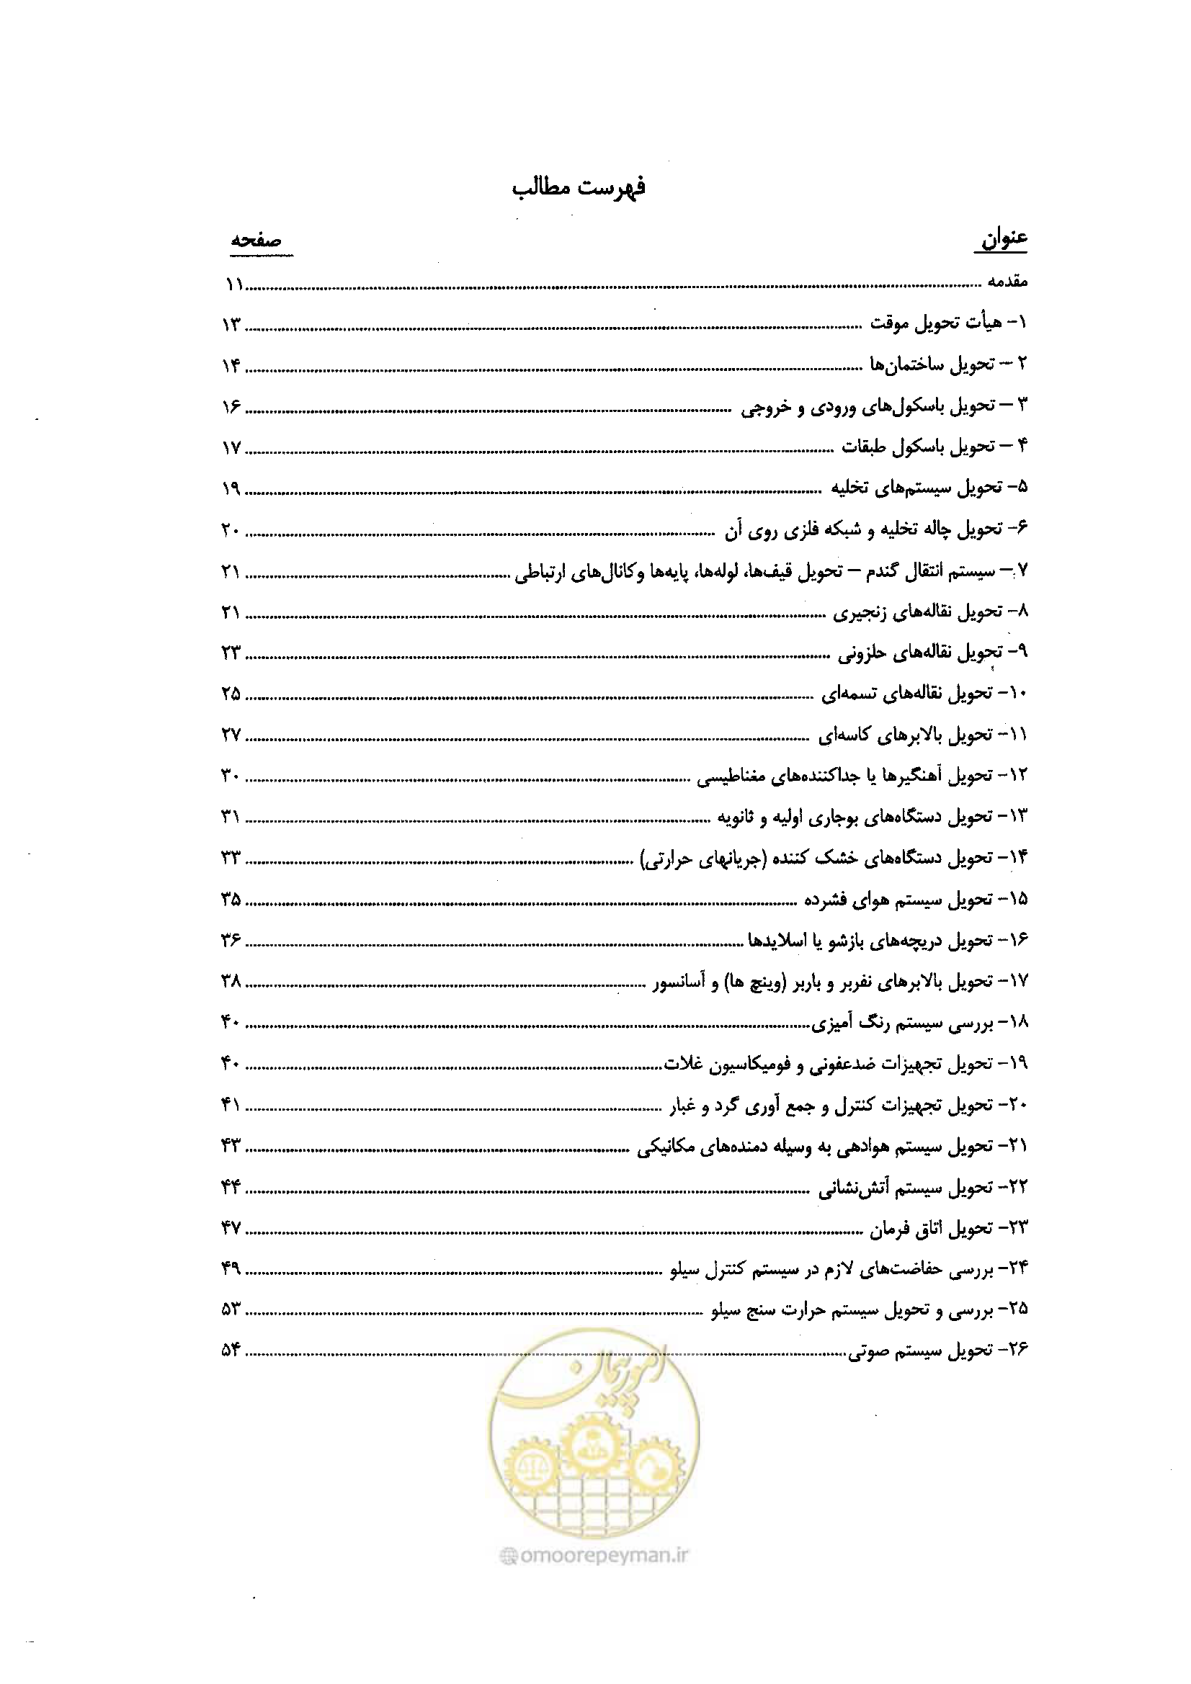 فهرست مطالب
عنوان صفحه
مقدمه ........ ۱۱
۱- هیأت تحویل موقت ........ ۱۳
۲ – تحویل ساختمان‌ها ........ ۱۴
۳ – تحویل باسکول‌های ورودی و خروجی ........ ۱۶
۴ – تحویل باسکول طبقات ........ ۱۷
۵- تحویل سیستم‌های تخلیه ........ ۱۹
۶- تحویل چاله تخلیه و شبکه فلزی روی آن ........ ۲۰
۷- سیستم انتقال گندم – تحویل قیف‌ها، لوله‌ها، پایه‌ها و کانال‌های ارتباطی ........ ۲۱
۸- تحویل نقاله‌های زنجیری ........ ۲۱
۹- تحویل نقاله‌های حلزونی ........ ۲۳
۱۰- تحویل نقاله‌های تسمه‌ای ........ ۲۵
۱۱- تحویل بالابرهای کاسه‌ای ........ ۲۷
۱۲- تحویل آهنگیرها یا جداکننده‌های مغناطیسی ........ ۳۰
۱۳- تحویل دستگاه‌های بوجاری اولیه و ثانویه ........ ۳۱
۱۴- تحویل دستگاه‌های خشک کننده (جریانهای حرارتی) ........ ۳۳
۱۵- تحویل سیستم هوای فشرده ........ ۳۵
۱۶- تحویل دریچه‌های بازشو یا اسلایدها ........ ۳۶
۱۷- تحویل بالابرهای نفربر و باربر (وینچ ها) و آسانسور ........ ۳۸
۱۸- بررسی سیستم رنگ آمیزی ........ ۴۰
۱۹- تحویل تجهیزات ضدعفونی و فومیکاسیون غلات ........ ۴۰
۲۰- تحویل تجهیزات کنترل و جمع آوری گرد و غبار ........ ۴۱
۲۱- تحویل سیستم هوادهی به وسیله دمنده‌های مکانیکی ........ ۴۳
۲۲- تحویل سیستم آتش‌نشانی ........ ۴۴
۲۳- تحویل اتاق فرمان ........ ۴۷
۲۴- بررسی حفاضت‌های لازم در سیستم کنترل سیلو ........ ۴۹
۲۵- بررسی و تحویل سیستم حرارت سنج سیلو ........ ۵۳
۲۶- تحویل سیستم صوتی ........ ۵۴
امور پیمان
omoorepeyman.ir